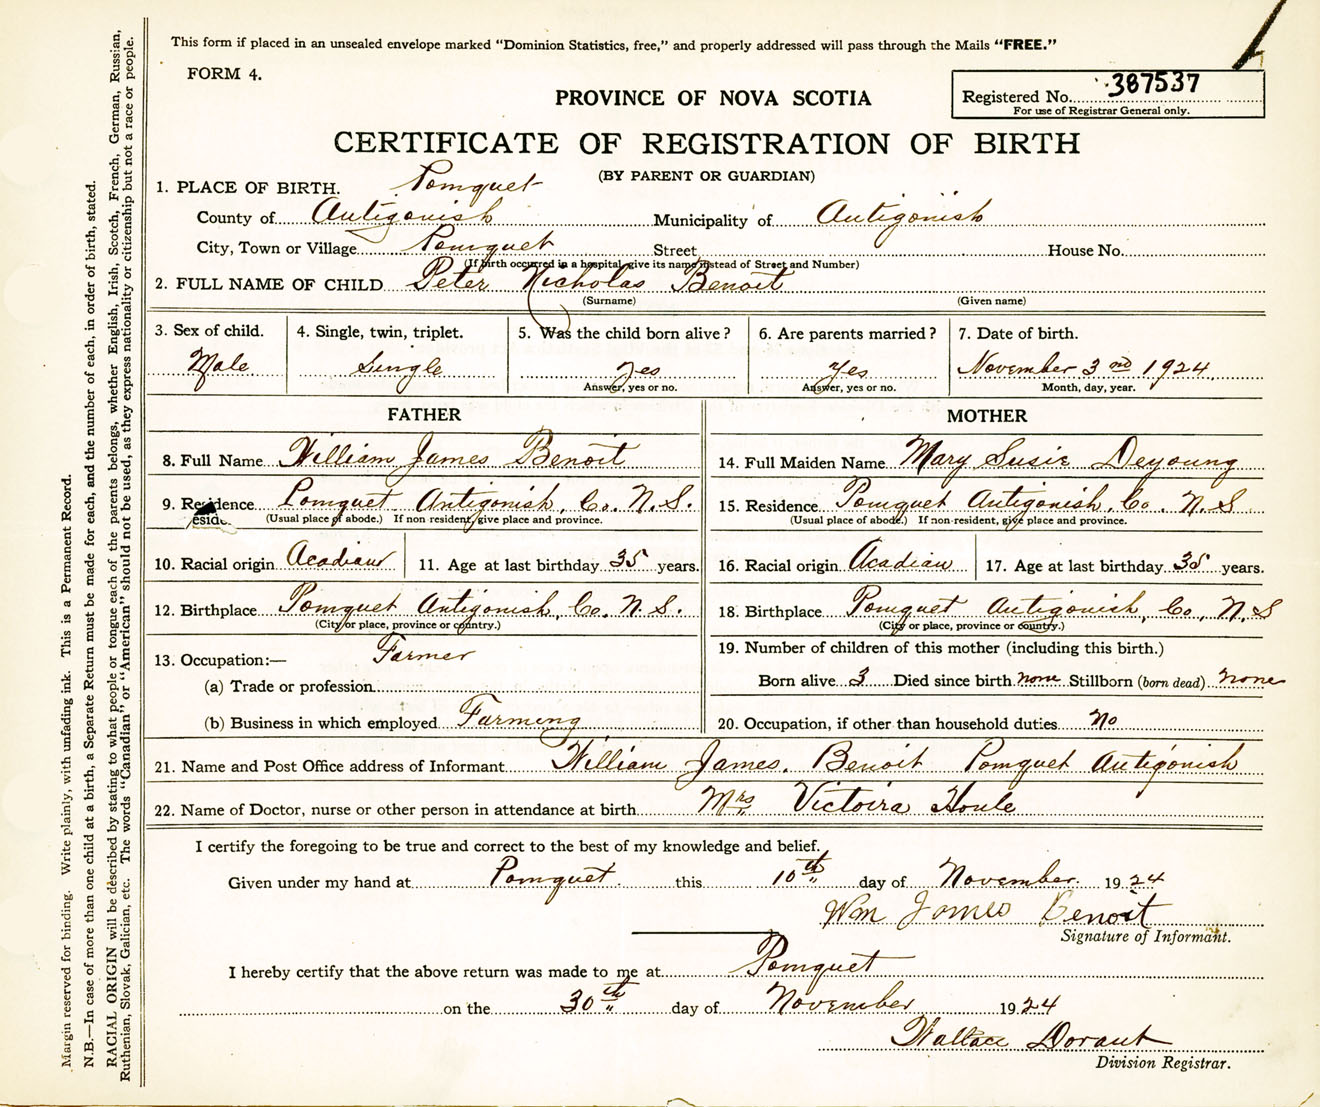 This form if placed in an unsealed envelope marked "Dominion Statistics, free," and properly addressed will pass through the Mails "FREE."
FORM 4.
Registered No. 387537
For use of Registrar General only.
PROVINCE OF NOVA SCOTIA
CERTIFICATE OF REGISTRATION OF BIRTH
(BY PARENT OR GUARDIAN)
1. PLACE OF BIRTH. Pomquet
County of Antigonish Municipality of Antigonish
City, Town or Village Pomquet Street House No.
(If birth occurred in a hospital, give its name instead of Street and Number)
2. FULL NAME OF CHILD Peter Nicholas Benoit
(Surname) (Given name)
3. Sex of child. 4. Single, twin, triplet. 5. Was the child born alive? 6. Are parents married? 7. Date of birth.
Male Single Yes Yes November 3rd 1924
Answer, yes or no. Answer, yes or no. Month, day, year.
FATHER MOTHER
8. Full Name William James Benoit 14. Full Maiden Name Mary Susie Deyoung
9. Residence Pomquet Antigonish, Co. N.S. 15. Residence Pomquet Antigonish, Co. N.S
(Usual place of abode.) If non-resident, give place and province. (Usual place of abode.) If non-resident, give place and province.
eside.
10. Racial origin Acadian 11. Age at last birthday 35 years. 16. Racial origin Acadian 17. Age at last birthday 35 years.
12. Birthplace Pomquet Antigonish, Co. N.S. 18. Birthplace Pomquet Antigonish, Co, N.S
(City or place, province or country.) (City or place, province or country.)
13. Occupation:— Farmer 19. Number of children of this mother (including this birth.)
(a) Trade or profession Born alive 3 Died since birth none Stillborn (born dead) none
(b) Business in which employed Farming 20. Occupation, if other than household duties No
21. Name and Post Office address of Informant William James. Benoit Pomquet Antigonish
22. Name of Doctor, nurse or other person in attendance at birth Mrs Victoira Houle
I certify the foregoing to be true and correct to the best of my knowledge and belief.
Given under my hand at Pomquet this 10th day of November 1924
Wm James Benoit
Signature of Informant.
I hereby certify that the above return was made to me at Pomquet
on the 30th day of November 1924
Wallace Dorant
Division Registrar.
Margin reserved for binding. Write plainly, with unfading ink. This is a Permanent Record.
N.B.—In case of more than one child at a birth, a Separate Return must be made for each, and the number of each, in order of birth, stated.
RACIAL ORIGIN will be described by stating to what people or tongue each of the parents belongs, whether English, Irish, Scotch, French, German, Russian,
Ruthenian, Slovak, Galician, etc. The words "Canadian" or "American" should not be used, as they express nationality or citizenship but not a race or people.